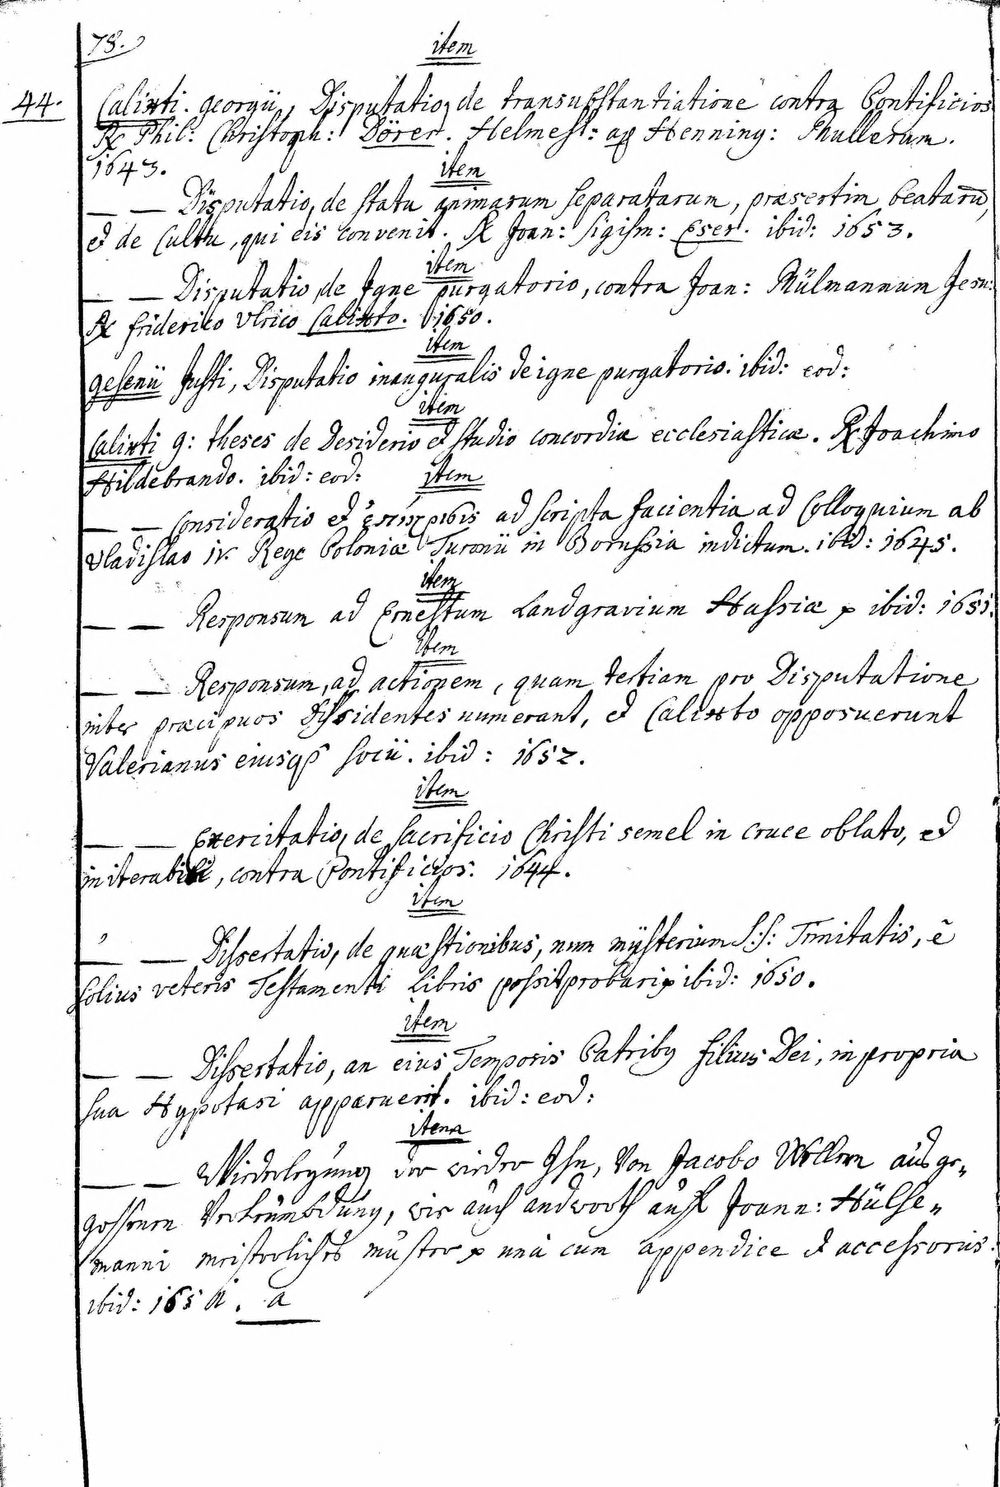 78.
item
44. Calixti. georgii, Disputatio, de transubstantiatione contra Pontificios
Rx Phil: Christoph: Dörer. Helmest: ap Henning: Mullerum.
1643.
item
— — Disputatio, de statu animarum separatarum, præsertim beatarũ,
et de Cultu, qui eis convenit. Rx Joan: Sigism: Eser. ibid: 1653.
item
— — Disputatio, de Igne purgatorio, contra Joan: Mülmannum Jesu:
Rx friderico Vlrico Calixto. 1650.
item
gesenii Justi, Disputatio inauguralis de igne purgatorio. ibid: eod:
item
Calixti g: theses de Desiderio et studio concordiæ ecclesiasticæ. Rx Joachimo
Hildebrando. ibid: eod:
item
— — Consideratio et ἐπίκρισις ad scripta facientia ad Colloquium ab
Vladislao iv. Rege Poloniæ Turonii in Borussia indictum. ibid: 1645.
item
— — Responsum ad Ernestum Landgravium Hassiæ ibid: 1651.
item
— — Responsum, ad actionem, quam tertiam pro Disputatione
inter præcipuos Dissidentes numerant, et Calixto opposuerunt
Valerianus eiusq; socii. ibid: 1652.
item
— — Exercitatio, de sacrificio Christi semel in cruce oblato, et
initerabili, contra Pontificios. 1644.
item
— — Dissertatio, de quæstionibus, num mÿsterium S:S: Trinitatis, ẽ
solius veteris Testamenti Libris possit probari ibid: 1650.
item
— — Dissertatio, an eius Temporis Patribus filius Dei, in propria
sua Hypotasi apparuerit. ibid: eod:
item
— — Wiederlegung der wieder Ihn, Von Jacobo Wellern ausge„
gossenen Verleumbdung, wie auch andworth auff Joann: Hülse„
manni meisterliches muster unà cum appendice et accessoriis.
ibid: 1651. a